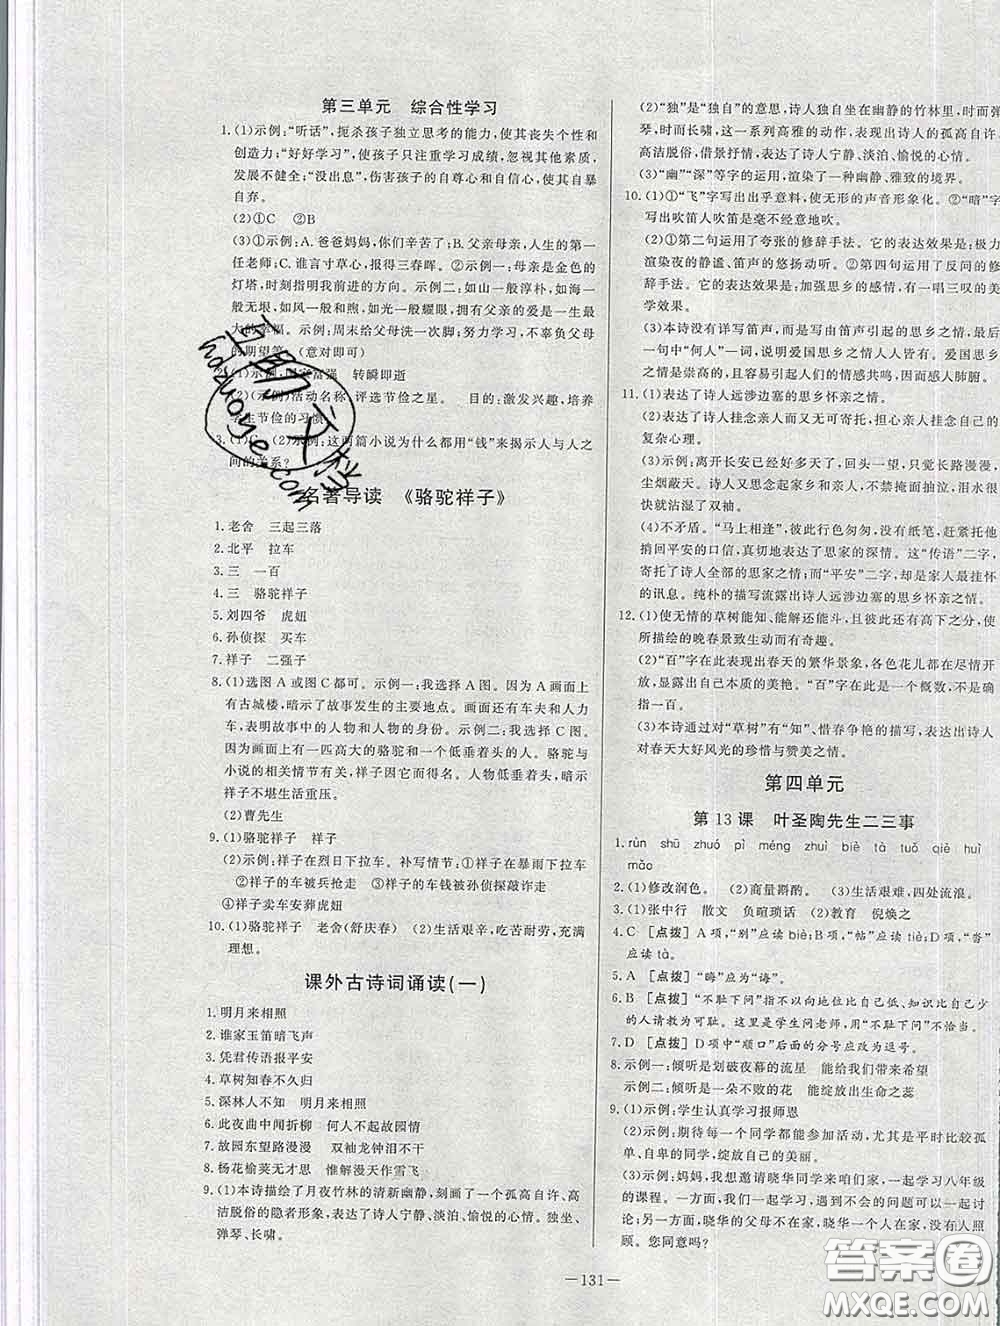 第三单元 综合性学习
1. (1)示例:“听话”,扼杀孩子独立思考的能力,使其丧失个性和
创造力;“好好学习”,使孩子只注重学习成绩,忽视其他素质,
发展不健全;“没出息”,伤害孩子的自尊心和自信心,使其自暴
自弃。
(2)①C ②B
(3)①示例:A.爸爸妈妈,你们辛苦了;B.父亲母亲,人生的第一
任老师;C.谁言寸草心,报得三春晖。②示例一:母亲是金色的
灯塔,时刻指明我前进的方向。示例二:如山一般淳朴,如海一
般无垠,如风一般和煦,如光一般耀眼,拥有父亲的爱是一生最
大的幸福。示例:周末给父母洗一次脚;努力学习,不辜负父母
的期望等。(意对即可)
2. (1)示例:国家富强 转瞬即逝
(2)示例:活动名称:评选节俭之星。 目的:激发兴趣,培养
学生节俭的习惯。
3. (1)C (2)示例:这两篇小说为什么都用“钱”来揭示人与人之
间的关系?
名著导读 《骆驼祥子》
1. 老舍 三起三落
2. 北平 拉车
3. 三 一百
4. 三 骆驼祥子
5. 刘四爷 虎妞
6. 孙侦探 买车
7. 祥子 二强子
8. (1)选图A或图C都可。示例一:我选择A图。因为A画面上
有古城楼,暗示了故事发生的主要地点。画面还有车夫和人力
车,表明故事中的人物和人物的身份。示例二:我选择C图。
因为画面上有一匹高大的骆驼和一个低垂着头的人。骆驼与
小说的相关情节有关,祥子因它而得名。人物低垂着头,暗示
祥子不堪生活重压。
(2)曹先生
9. (1)骆驼祥子 祥子
(2)示例:祥子在烈日下拉车。补写情节:①祥子在暴雨下拉车
②祥子的车被兵抢走 ③祥子的车钱被孙侦探敲诈走
④祥子卖车安葬虎妞
10. (1)骆驼祥子 老舍(舒庆春) (2)生活艰辛,吃苦耐劳,充满
理想。
课外古诗词诵读(一)
1. 明月来相照
2. 谁家玉笛暗飞声
3. 凭君传语报平安
4. 草树知春不久归
5. 深林人不知 明月来相照
6. 此夜曲中闻折柳 何人不起故园情
7. 故园东望路漫漫 双袖龙钟泪不干
8. 杨花榆荚无才思 惟解漫天作雪飞
9. (1)本诗描绘了月夜竹林的清新幽静,刻画了一个孤高自许、高
洁脱俗的隐者形象,表达了诗人宁静、淡泊、愉悦的心情。独坐、
弹琴、长啸。
(2)“独”是“独自”的意思,诗人独自坐在幽静的竹林里,时而弹
琴,时而长啸,这一系列高雅的动作,表现出诗人的孤高自许、
高洁脱俗,借景抒情,表达了诗人宁静、淡泊、愉悦的心情。
(3)“幽”“深”等字的运用,渲染了一种幽静、雅致的境界。
10. (1)①“飞”字写出出乎意料,使无形的声音形象化。②“暗”字
写出吹笛人吹笛是毫不经意地吹。
(2)①第二句运用了夸张的修辞手法。它的表达效果是:极力
渲染夜的静谧、笛声的悠扬动听。②第四句运用了反问的修
辞手法。它的表达效果是:加强思乡的感情,有一唱三叹的美
学效果。
(3)本诗没有详写笛声,而是由笛声引起的思乡之情,特别是最后
一句中“何人”一词,说明爱国思乡之情人人皆有。爱国思乡之情
是崇高的,且容易引起人们的情感共鸣,感人肺腑。
11. (1)表达了诗人远涉边塞的思乡怀亲之情。
(2)表达了诗人挂念亲人而又无可寄托,担心亲人挂念自己的
复杂心理。
(3)示例:离开长安已经好多天了,回头一望,只觉长路漫漫,
尘烟蔽天。诗人又思乡心切,不禁掩面抽泣,泪水很
快就沾湿了双袖。
(4)不矛盾。“马上相逢”,行色匆匆,没有纸笔,赶紧托人
捎回平安的口信,真切地表达了思家的深情。这“传语”二字,
寄托了诗人全部的思家之情;而“平安”二字,
的讯息。纯朴的描写流露出诗人远涉边塞的思乡怀亲之情。
12. (1)使无情的草树能知、能解还能斗,且彼此还有高下之分,使
所描绘的晚春景致生动而有奇趣。
(2)“百”字在此表现出春天的繁华景象,各色花儿都在尽情开
放,显露出自己的美艳。“百”字在此是一个概数,不是确
指一百。
(3)本诗通过对“草树”有“知”、惜春争艳的描写,表达出诗人
对春天大好风光的珍惜与赞美之情。
第四单元
第13课 叶圣陶先生二三事
1. rùn shū zhuó pì méng zhuì biè tà tuǒ qiè huì
mǎo
2. (1)修改润色。 (2)商量斟酌。 (3)生活艰难,四处流浪。
3. (1)张中行 散文 负暄琐话 (2)教育 倪焕之
4. C [点拨] A项,“别”应读biè;B项,“帖”应读tiè;D项,“沓”
应读tà。
5. A [点拨] “晦”应为“诲”。
6. B [点拨] “不耻下问”指不以向地位比自己低、知识比自己少
的人请教为可耻。这里是学生问老师,用“不耻下问”不恰当。
7. D [点拨] D项中“顺口”后面的分号应改为逗号。
8. 示例一:倾听是划破夜幕的流星 能给我们带来希望
示例二:倾听是一朵不败的花 能绽放出生命之蕊
9. (1)示例:学生认真学习报师恩
(2)示例:期待每一个同学都能参加活动,尤其是平时比较孤
单、自卑的同学,绽放自己的美丽。
(3)示例:妈妈,我想邀请晓华同学来咱们家一起学习八年级
的课程。一方面,我们一起学习,遇到不会的问题可以一起讨
论;另一方面,晓华的父母不在家,晓华一个人在家,没有人照
顾。您同意吗?
—131—
互助文档
hdzuoye.com
答案圈
MXQE.COM